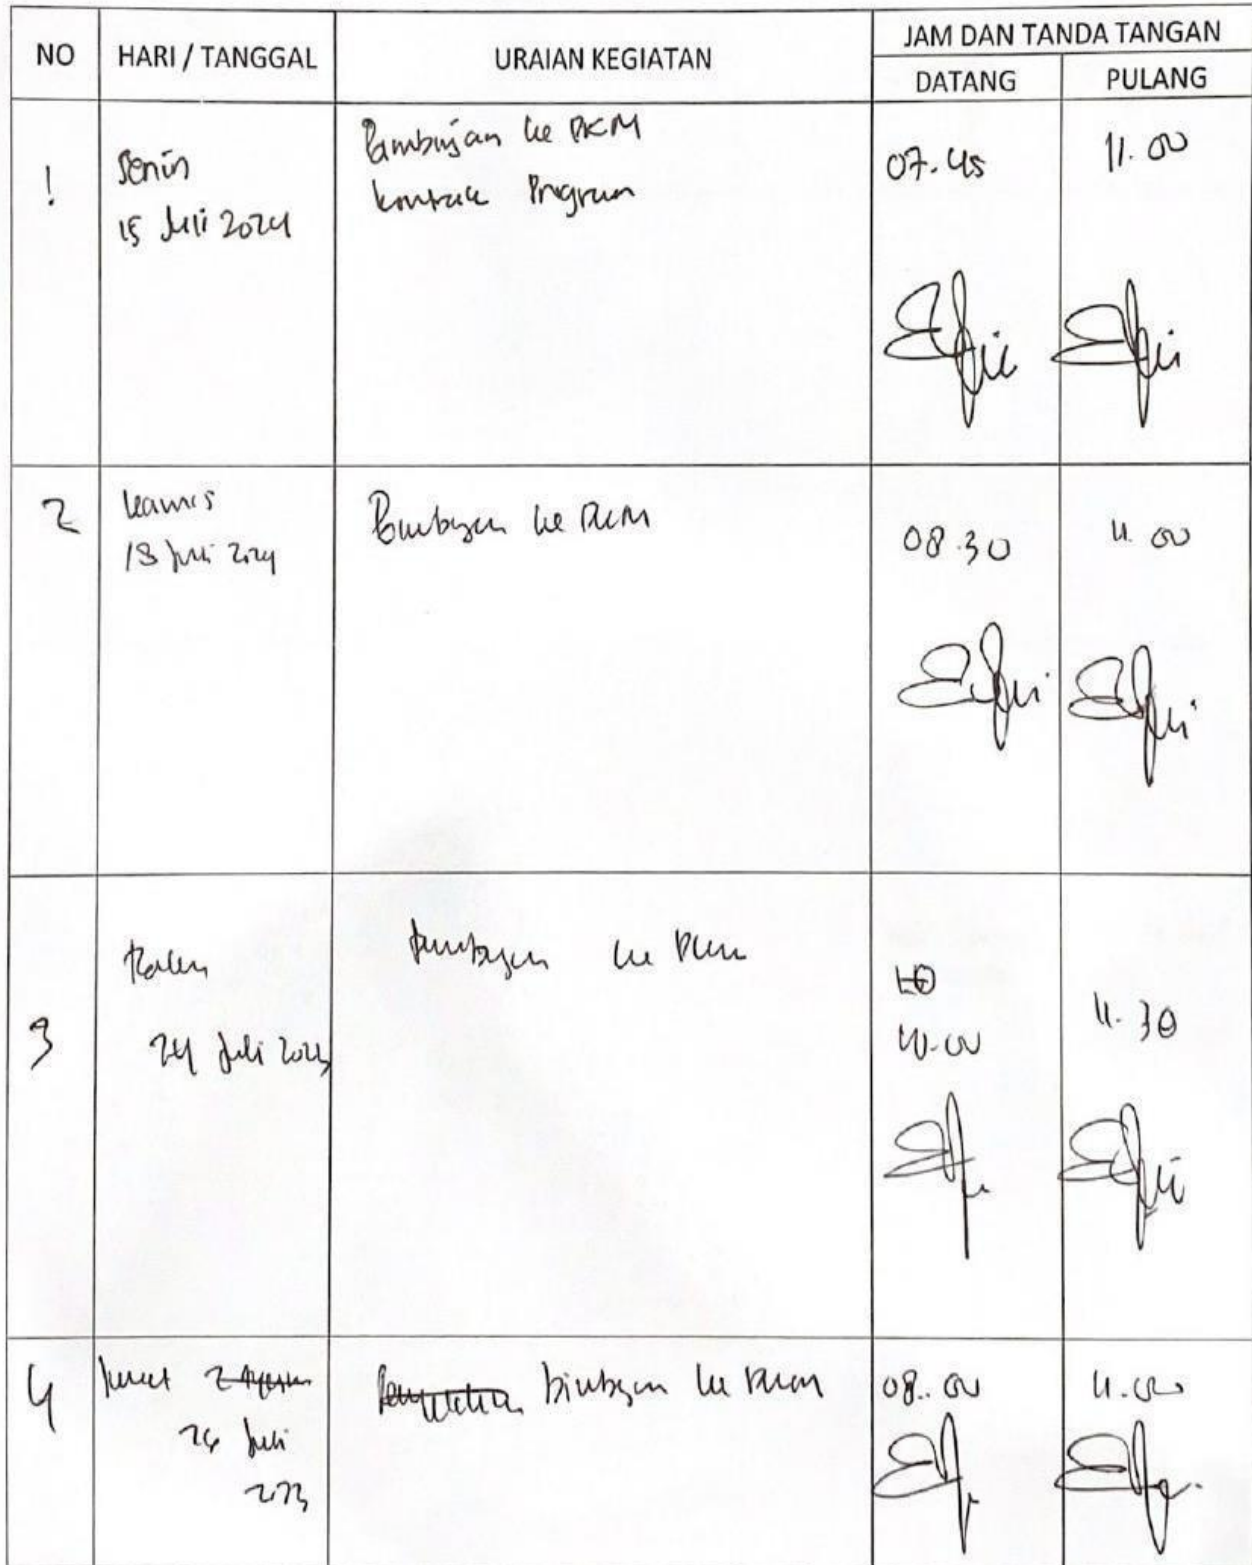 NO HARI / TANGGAL URAIAN KEGIATAN JAM DAN TANDA TANGAN
DATANG PULANG
1 Senin
15 Juli 2024
Bimbingan ke PKM
kontrak Program
07.45 11.00
2 Kamis
18 Juli 2024
Bimbingan ke PKM
08.30 11.00
3 Rabu
24 Juli
Bimbingan ke PKM
10
10.00
11.30
4 Jumat
26 Juli
bimbingan ke PKM
08.00 11.00